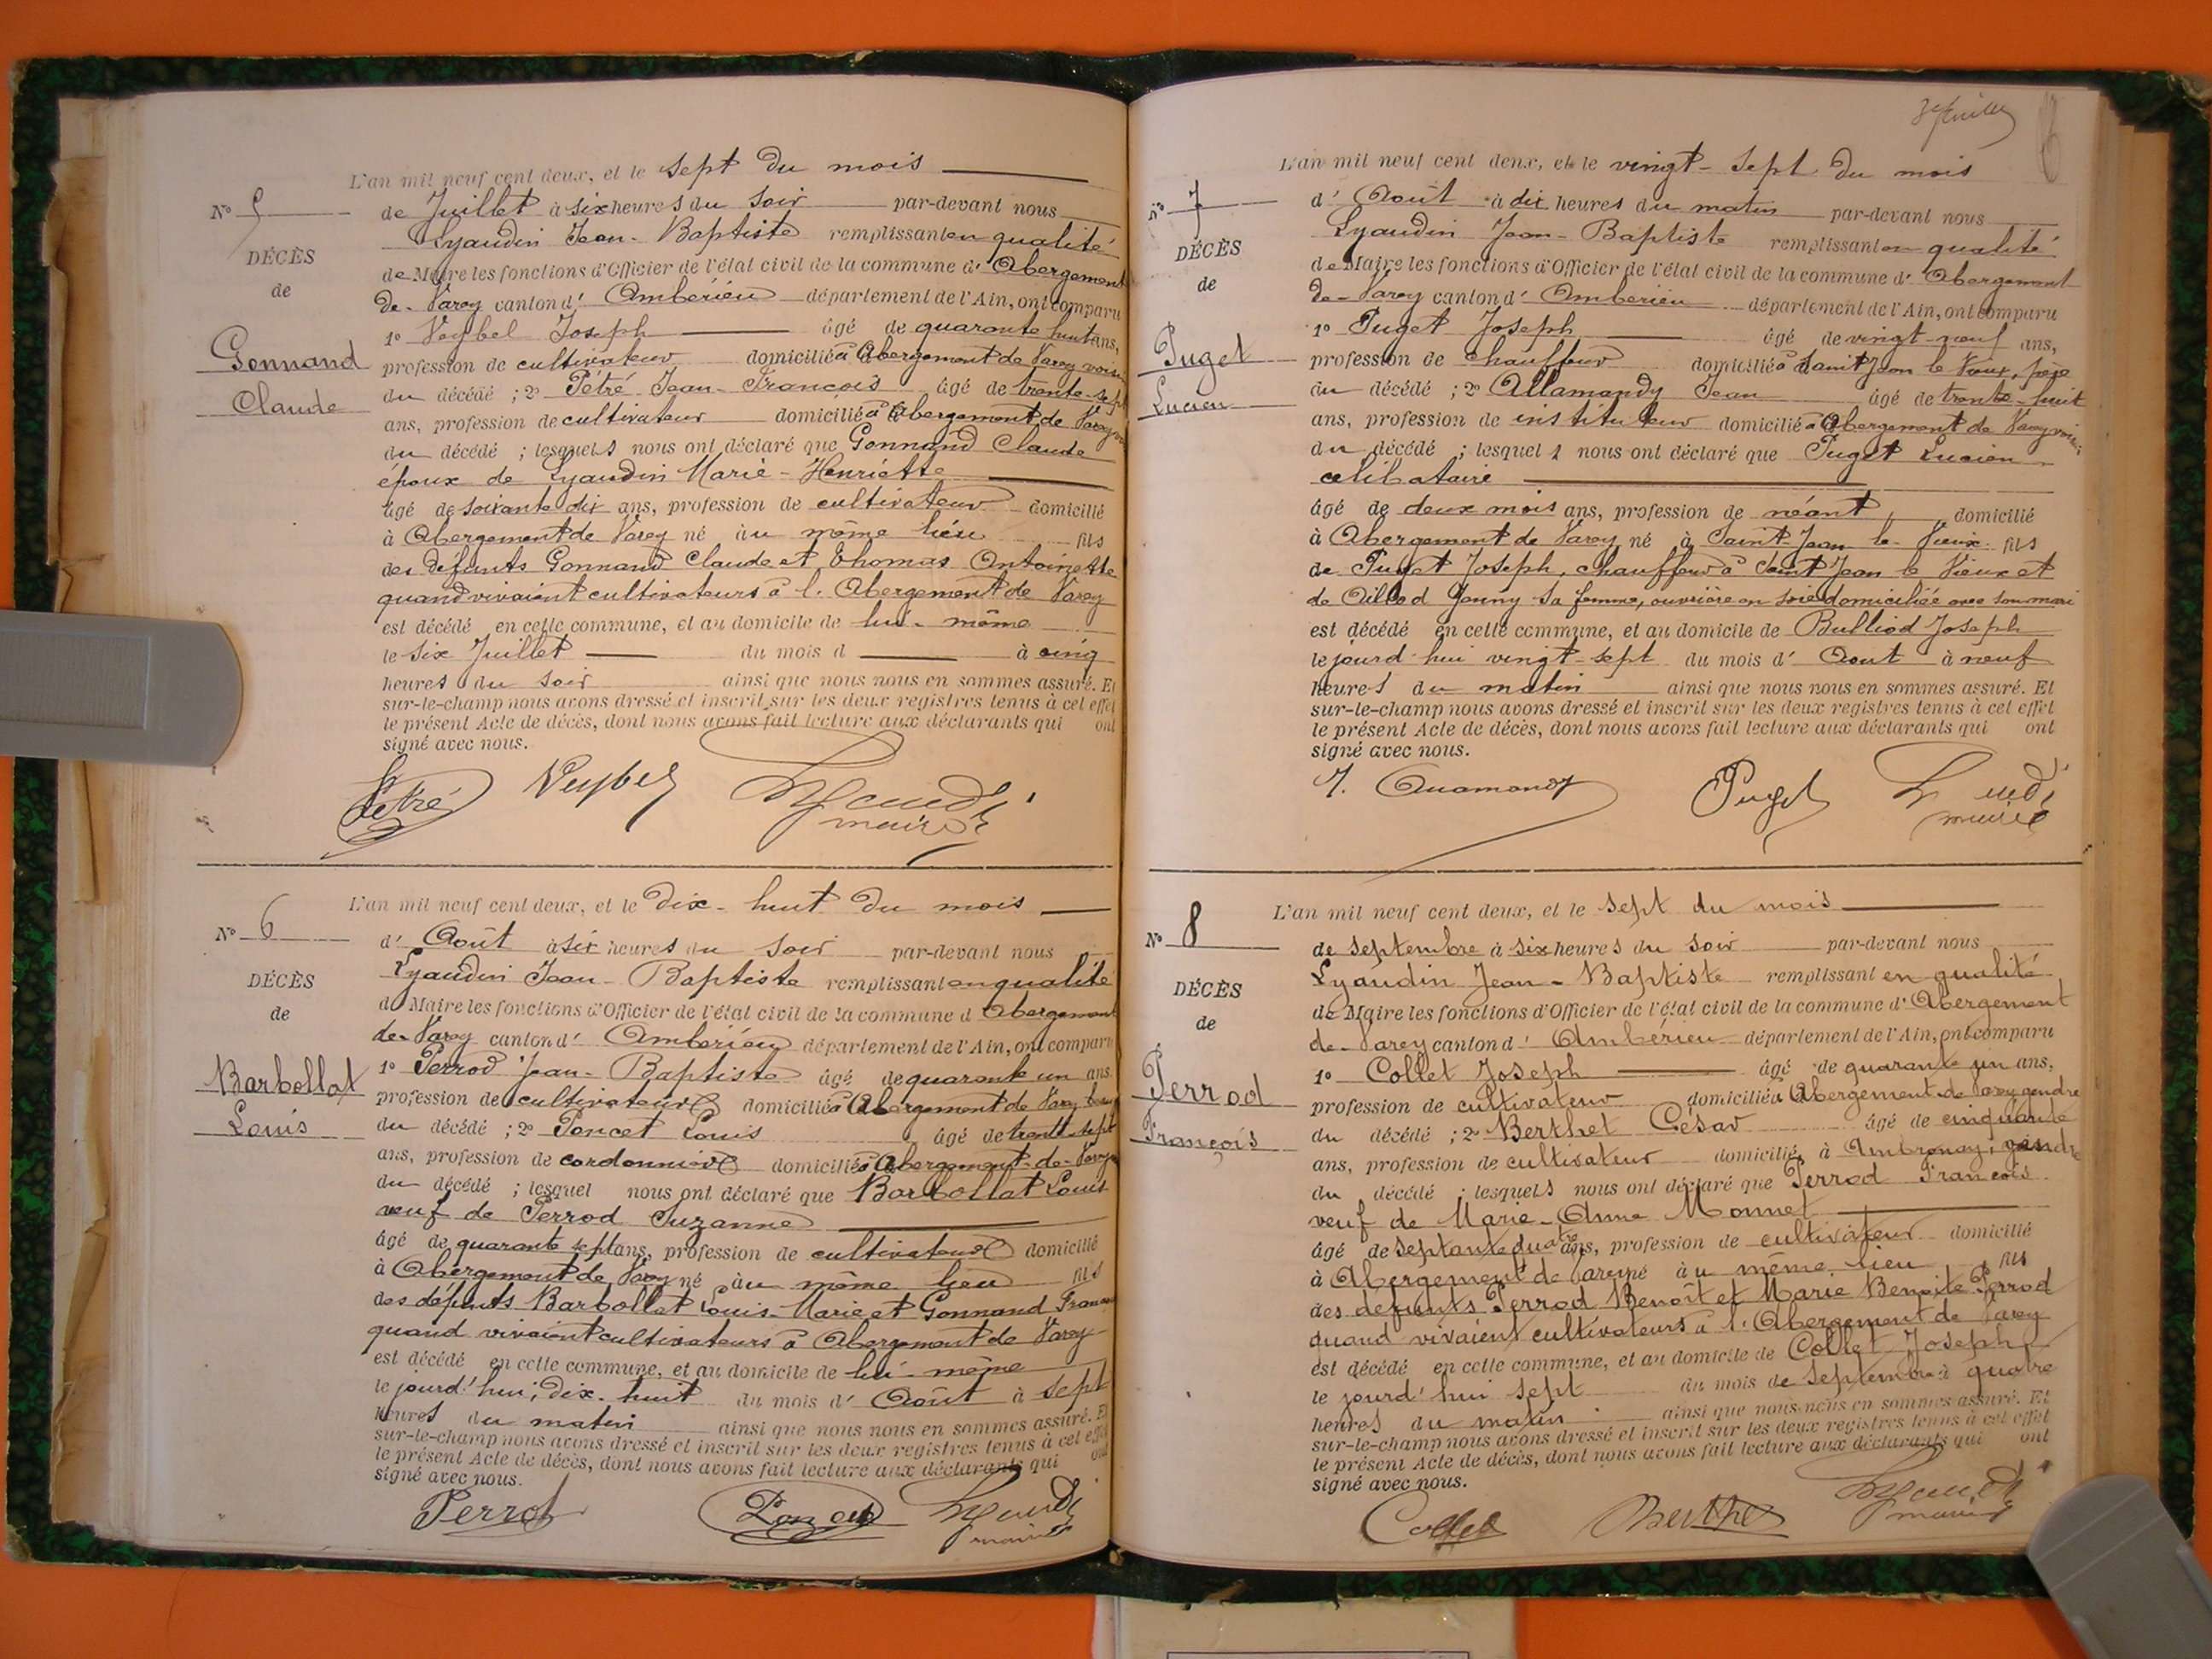 L'an mil neuf cent deux, et le sept du mois
N° 5
de Juillet à six heures du soir par-devant nous
Lyaudin Jean-Baptiste remplissant en qualité
DÉCÈS
de Maire les fonctions d'Officier de l'état civil de la commune d' Abergement
de
de-Varey canton d' Ambérieu département de l'Ain, ont comparu
1° Veybel Joseph âgé de quarante huit ans,
Gonnand
profession de cultivateur domicilié à Abergement de Varey voisin
Claude
du décédé ; 2° Pétré Jean-François âgé de trente-sept
ans, profession de cultivateur domicilié à Abergement de Varey
du décédé ; lesquels nous ont déclaré que Gonnand Claude
époux de Lyaudin Marie-Henriette
âgé de soixante dix ans, profession de cultivateur domicilié
à Abergement de Varey né au même lieu fils
des défunts Gonnand Claude et Thomas Antoinette
quand vivaient cultivateurs à l'Abergement de Varey
est décédé en cette commune, et au domicile de lui-même
le six Juillet du mois d à cinq
heures du soir ainsi que nous nous en sommes assuré. Et
sur-le-champ nous avons dressé et inscrit sur les deux registres tenus à cet effet
le présent Acte de décès, dont nous avons fait lecture aux déclarants qui ont
signé avec nous.
Petré Veybel Lyaudin
maire
L'an mil neuf cent deux, et le dix-huit du mois
N° 6
d' Août à six heures du soir par-devant nous
Lyaudin Jean-Baptiste remplissant en qualité
DÉCÈS
de Maire les fonctions d'Officier de l'état civil de la commune d Abergement
de
de-Varey canton d' Ambérieu département de l'Ain, ont comparu
1° Perrod Jean-Baptiste âgé de quarante un ans
Barbollat
profession de cultivateur domicilié à Abergement de Varey
Louis
du décédé ; 2° Poncet Louis âgé de trente sept
ans, profession de cordonnier domicilié à Abergement-de-Varey
du décédé ; lesquel nous ont déclaré que Barbollat Louis
veuf de Perrod Suzanne
âgé de quarante sept ans, profession de cultivateur domicilié
à Abergement de Varey né au même lieu fils
des défunts Barbollat Louis-Marie et Gonnand
quand vivaient cultivateurs à Abergement de Varey
est décédé en cette commune, et au domicile de lui-même
le jourd'hui, dix-huit du mois d' Août à sept
heures du matin ainsi que nous nous en sommes assuré. Et
sur-le-champ nous avons dressé et inscrit sur les deux registres tenus à cet effet
le présent Acte de décès, dont nous avons fait lecture aux déclarants qui ont
signé avec nous.
Perrod Poncet Lyaudin
maire
L'an mil neuf cent deux, et le vingt-sept du mois
N° 7
d' Août à dix heures du matin par-devant nous
Lyaudin Jean-Baptiste remplissant en qualité
DÉCÈS
de Maire les fonctions d'Officier de l'état civil de la commune d' Abergement
de
de-Varey canton d' Amberieu département de l'Ain, ont comparu
1° Puget Joseph âgé de vingt-neuf ans,
Puget
profession de chauffeur domicilié à Saint Jean le Vieux, père
Lucien
du décédé ; 2° Allamandy Jean âgé de trente-huit
ans, profession de instituteur domicilié à Abergement de Varey voisin
du décédé ; lesquels nous ont déclaré que Puget Lucien
célibataire
âgé de deux mois ans, profession de néant domicilié
à Abergement de Varey né à Saint-Jean le-Vieux fils
de Puget Joseph, chauffeur à Saint Jean le Vieux et
de Jenny sa femme, ouvrière en soie domiciliée avec son mari
est décédé en cette commune, et au domicile de Bulliod Joseph
le jourd'hui vingt-sept du mois d' Aout à neuf
heures du matin ainsi que nous nous en sommes assuré. Et
sur-le-champ nous avons dressé et inscrit sur les deux registres tenus à cet effet
le présent Acte de décès, dont nous avons fait lecture aux déclarants qui ont
signé avec nous.
J. Allamandy Puget Lyaudin
maire
L'an mil neuf cent deux, et le sept du mois
N° 8
de septembre à six heures du soir par-devant nous
Lyaudin Jean-Baptiste remplissant en qualité
DÉCÈS
de Maire les fonctions d'Officier de l'état civil de la commune d' Abergement
de
de-Varey canton d' Ambérieu département de l'Ain, ont comparu
1° Collet Joseph âgé de quarante un ans,
Perrod
profession de cultivateur domicilié à Abergement de Varey gendre
François
du décédé ; 2° Berthet César âgé de cinquante
ans, profession de cultivateur domicilié à Ambronay, gendre
du décédé ; lesquels nous ont déclaré que Perrod François
veuf de Marie-Anne Monnet
âgé de septante quatre ans, profession de cultivateur domicilié
à Abergement de Varey né au même lieu fils
des défunts Perrod Benoît et Marie Benoite Perrod
quand vivaient cultivateurs à l'Abergement de Varey
est décédé en cette commune, et au domicile de Collet Joseph
le jourd'hui sept du mois de septembre à quatre
heures du matin ainsi que nous nous en sommes assuré. Et
sur-le-champ nous avons dressé et inscrit sur les deux registres tenus à cet effet
le présent Acte de décès, dont nous avons fait lecture aux déclarants qui ont
signé avec nous.
Collet Berthet Lyaudin
maire